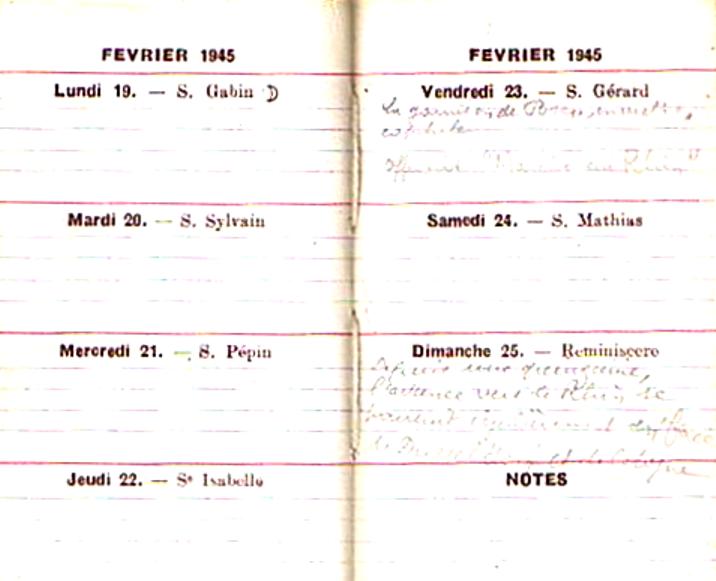 FEVRIER 1945
Lundi 19. — S. Gabin
Mardi 20. — S. Sylvain
Mercredi 21. — S. Pépin
Jeudi 22. — Sᵉ Isabelle
FEVRIER 1945
Vendredi 23. — S. Gérard
La garnison de
"Marche au Rhin"
Samedi 24. — S. Mathias
Dimanche 25. — Reminiscere
Depuis une quinzaine,
l'avance vers le Rhin se
poursuit face
et de Cologne
NOTES